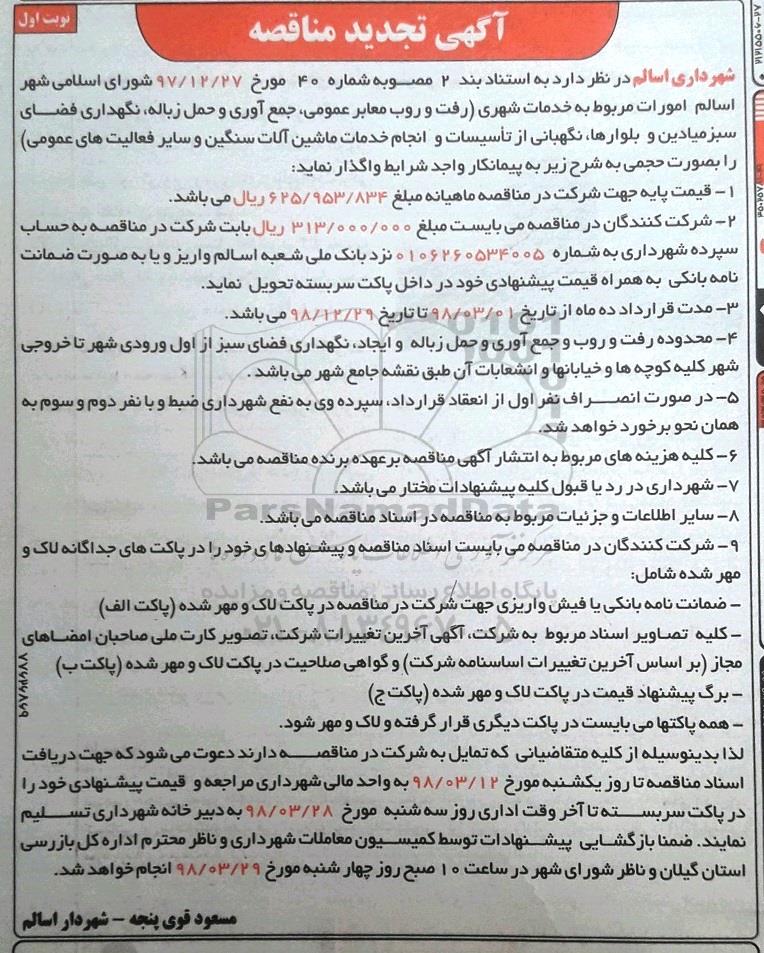 نوبت اول
آگهی تجدید مناقصه
شهرداری اسالم در نظر دارد به استناد بند ۲ مصوبه شماره ۴۰ مورخ ۹۷/۱۲/۲۷ شورای اسلامی شهر
اسالم امورات مربوط به خدمات شهری (رفت و روب معابر عمومی، جمع آوری و حمل زباله، نگهداری فضای
سبز میادین و بلوارها، نگهبانی از تأسیسات و انجام خدمات ماشین آلات سنگین و سایر فعالیت های عمومی)
را بصورت حجمی به شرح زیر به پیمانکار واجد شرایط واگذار نماید:
۱- قیمت پایه جهت شرکت در مناقصه ماهیانه مبلغ ۶۲۵/۹۵۳/۸۳۴ ریال می باشد.
۲- شرکت کنندگان در مناقصه می بایست مبلغ ۳۱۳/۰۰۰/۰۰۰ ریال بابت شرکت در مناقصه به حساب
سپرده شهرداری به شماره ۰۱۰۶۲۶۰۵۳۴۰۰۵ نزد بانک ملی شعبه اسالم واریز و یا به صورت ضمانت
نامه بانکی به همراه قیمت پیشنهادی خود در داخل پاکت سربسته تحویل نماید.
۳- مدت قرارداد ده ماه از تاریخ ۹۸/۰۳/۰۱ تا تاریخ ۹۸/۱۲/۲۹ می باشد.
۴- محدوده رفت و روب و جمع آوری و حمل زباله و ایجاد، نگهداری فضای سبز از اول ورودی شهر تا خروجی
شهر کلیه کوچه ها و خیابانها و انشعابات آن طبق نقشه جامع شهر می باشد.
۵- در صورت انصراف نفر اول از انعقاد قرارداد، سپرده وی به نفع شهرداری ضبط و با نفر دوم و سوم به
همان نحو برخورد خواهد شد.
۶- کلیه هزینه های مربوط به انتشار آگهی مناقصه برعهده برنده مناقصه می باشد.
۷- شهرداری در رد یا قبول کلیه پیشنهادات مختار می باشد.
ParsNamadData
۸- سایر اطلاعات و جزئیات مربوط به مناقصه در اسناد مناقصه می باشد.
۹- شرکت کنندگان در مناقصه می بایست اسناد مناقصه و پیشنهادهای خود را در پاکت های جداگانه لاک و
مهر شده شامل:
پایگاه اطلاع رسانی مناقصه و مزایده
- ضمانت نامه بانکی یا فیش واریزی جهت شرکت در مناقصه در پاکت لاک و مهر شده (پاکت الف)
- کلیه تصاویر اسناد مربوط به شرکت، آگهی آخرین تغییرات شرکت، تصویر کارت ملی صاحبان امضاهای
مجاز (بر اساس آخرین تغییرات اساسنامه شرکت) و گواهی صلاحیت در پاکت لاک و مهر شده (پاکت ب)
- برگ پیشنهاد قیمت در پاکت لاک و مهر شده (پاکت ج)
- همه پاکتها می بایست در پاکت دیگری قرار گرفته و لاک و مهر شود.
لذا بدینوسیله از کلیه متقاضیانی که تمایل به شرکت در مناقصه دارند دعوت می شود که جهت دریافت
اسناد مناقصه تا روز یکشنبه مورخ ۹۸/۰۳/۱۲ به واحد مالی شهرداری مراجعه و قیمت پیشنهادی خود را
در پاکت سربسته تا آخر وقت اداری روز سه شنبه مورخ ۹۸/۰۳/۲۸ به دبیر خانه شهرداری تسلیم
نمایند. ضمنا بازگشایی پیشنهادات توسط کمیسیون معاملات شهرداری و ناظر محترم اداره کل بازرسی
استان گیلان و ناظر شورای شهر در ساعت ۱۰ صبح روز چهار شنبه مورخ ۹۸/۰۳/۲۹ انجام خواهد شد.
مسعود قوی پنجه - شهردار اسالم